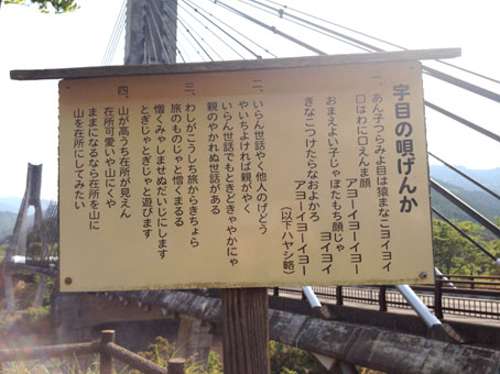 宇目の唄げんか
一、あん子つらみよ目は猿まなこヨイヨイ
口はわに口えんま顔
アヨーイヨーイヨー
おまえよい子じゃぼたもち顔じゃ
ヨイヨイ
きなこつけたらなおよかろ
アヨーイヨーイヨー
(以下ハヤシ略)
二、いらん世話やく他人のげどう
やいちよければ親がやく
いらん世話でもときどきゃやかにゃ
親のやかれぬ世話がある
三、わしがこうしち旅からきちょら
旅のものじゃと憎くまるる
憎くみゃしませぬだいじにします
とぎじゃとぎじゃと遊びます
四、山が高うち在所が見えん
在所可愛いや山にくや
ままになるなら在所を山に
山を在所にしてみたい